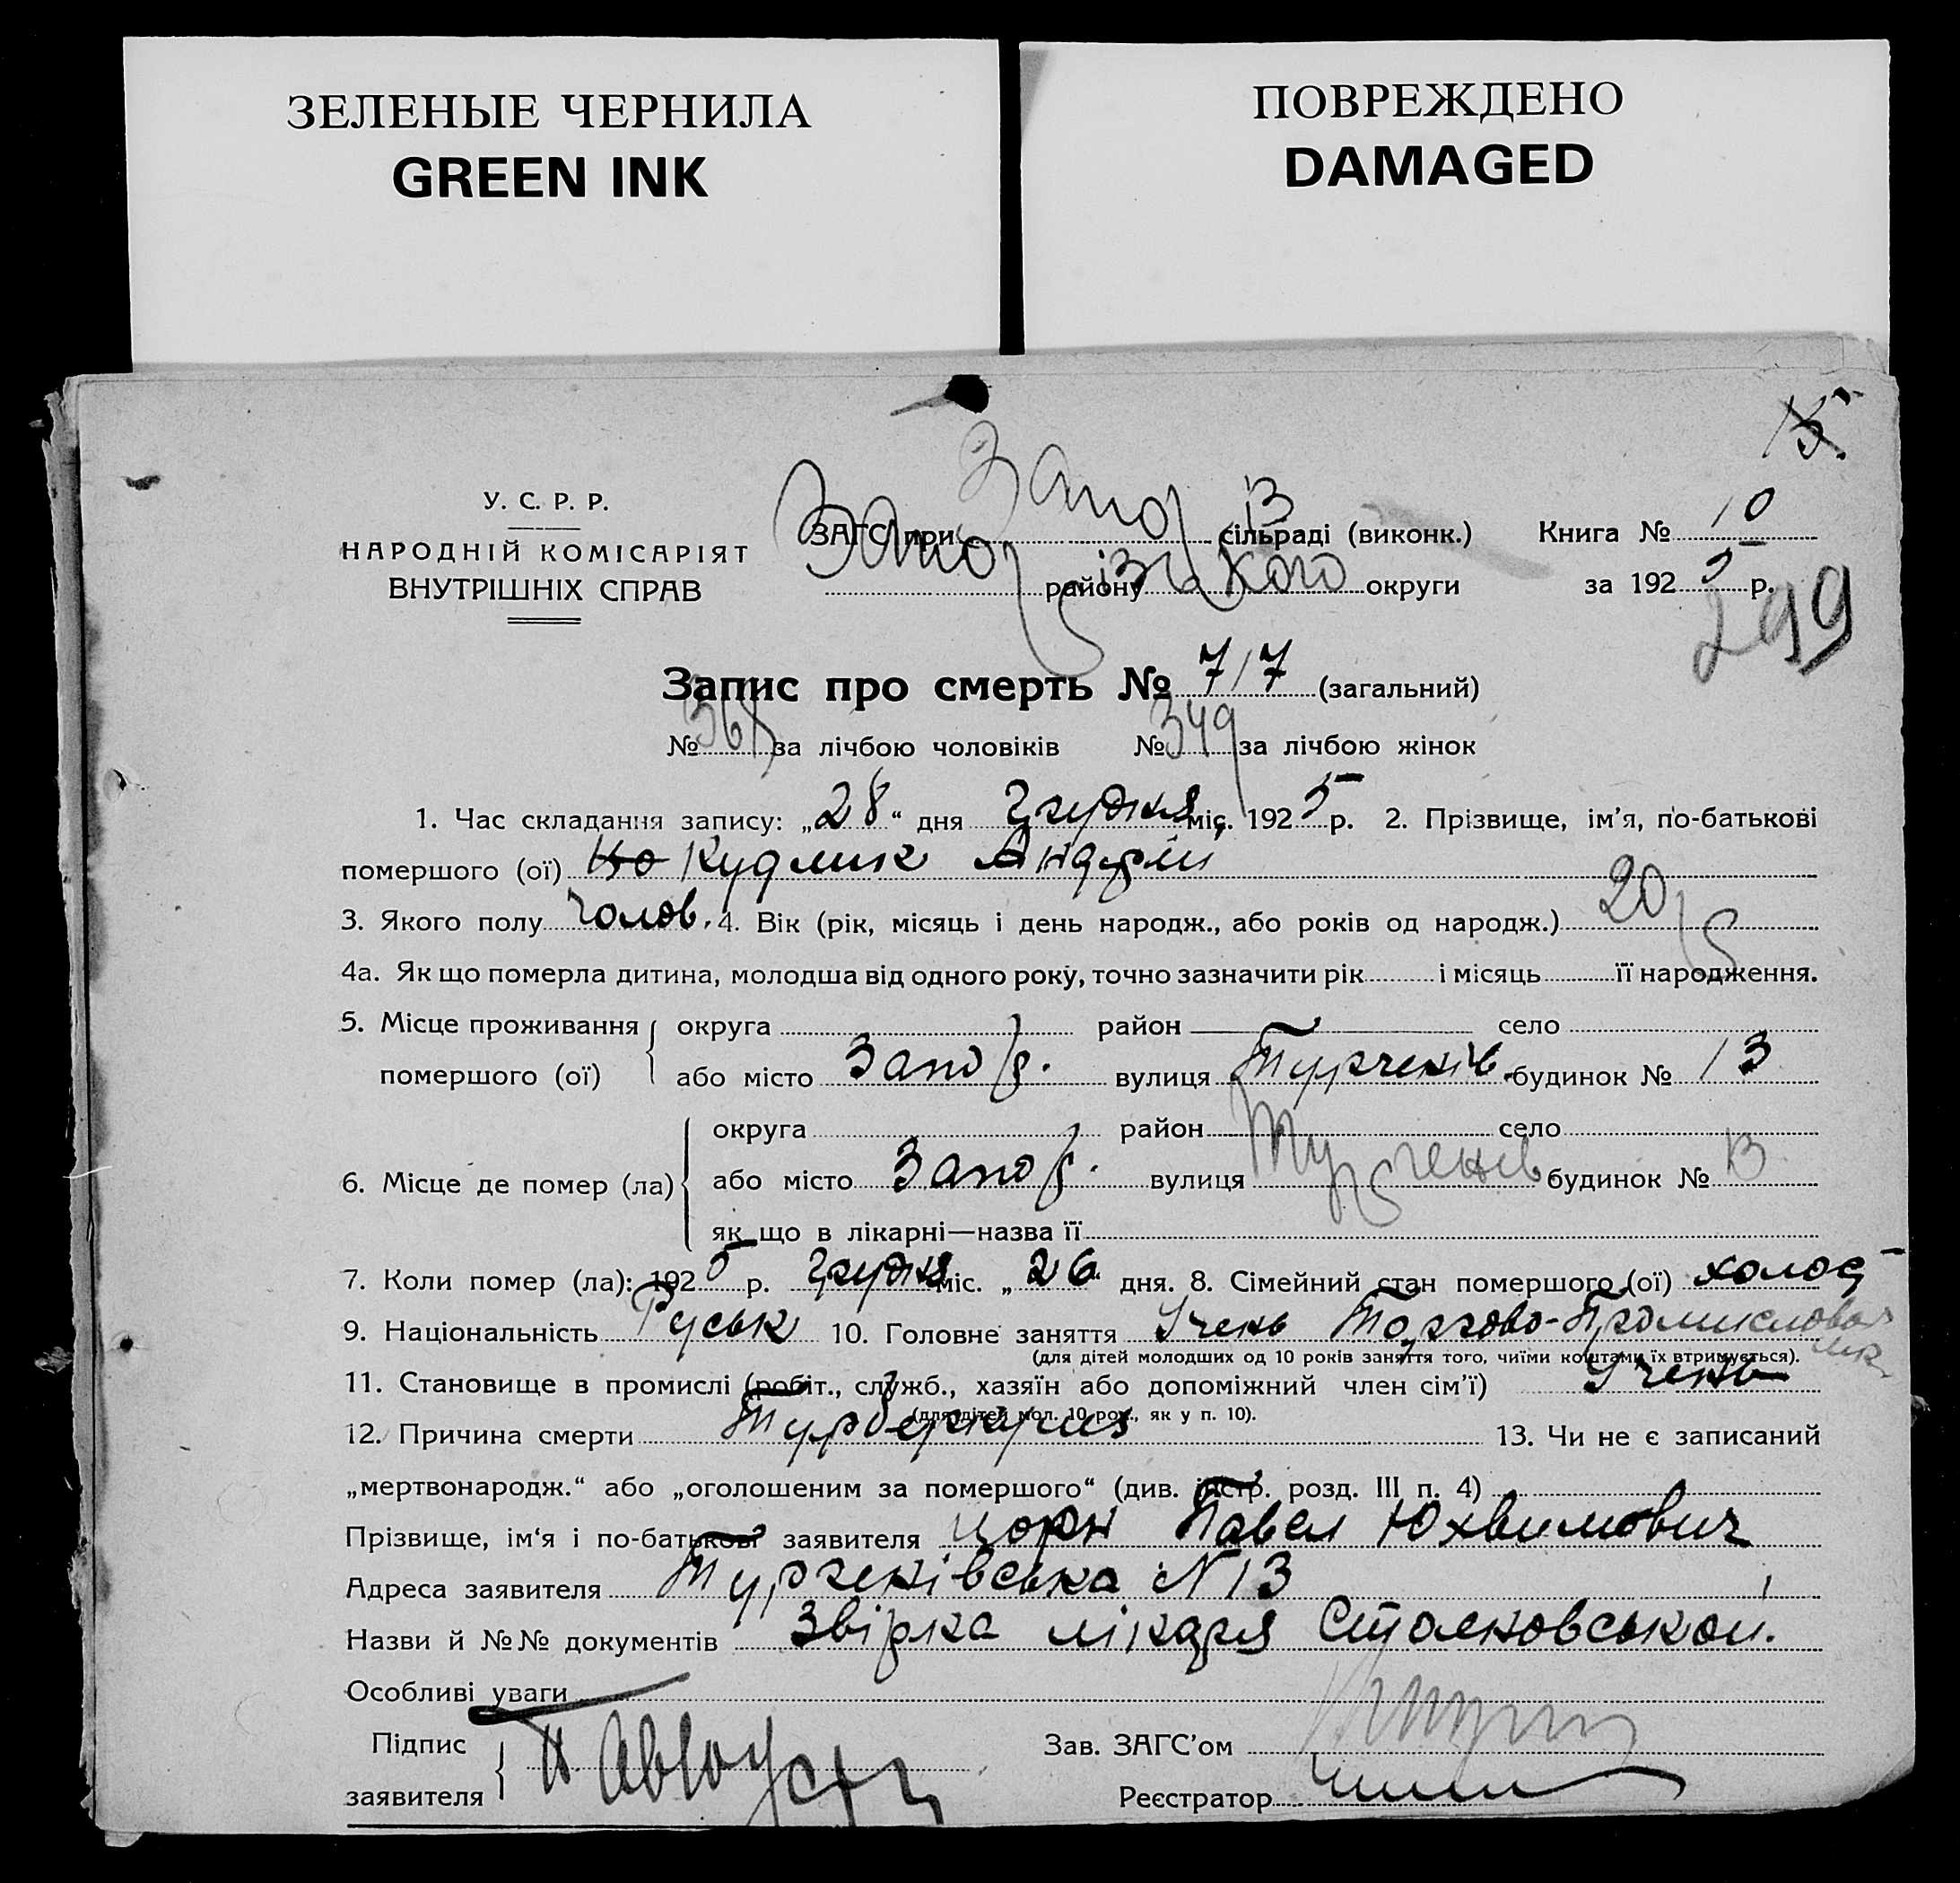 ЗЕЛЕНЫЕ ЧЕРНИЛА
GREEN INK
ПОВРЕЖДЕНО
DAMAGED
У. С. Р. Р.
НАРОДНІЙ КОМІСАРІЯТ
ВНУТРІШНІХ СПРАВ
ЗАГС при Запоріз сільраді (виконк.)
Запорізького району округи
Книга № 10
за 1925 р.
299
Запис про смерть № 717 (загальний)
№ 368 за лічбою чоловіків № 349 за лічбою жінок
1. Час складання запису: „28“ дня Грудня міс. 1925 р. 2. Прізвище, ім’я, по-батькові
помершого (ої) Кудлик Андрій
3. Якого полу чолов. 4. Вік (рік, місяць і день народж., або років од народж.) 20 р
4а. Як що померла дитина, молодша від одного року, точно зазначити рік і місяць її народження.
5. Місце проживання помершого (ої) округа район село
або місто Запор. вулиця Тургенів. будинок № 13
6. Місце де помер (ла) округа район село
або місто Запор. вулиця Тургенів будинок № 13
як що в лікарні—назва її
7. Коли помер (ла): 1925 р. Грудня міс. „26“ дня. 8. Сімейний стан помершого (ої) холост
9. Національність Руськ 10. Головне заняття Учень Торгово-Промислової шк
(для дітей молодших од 10 років заняття того, чиїми коштами їх втримується).
11. Становище в промислі (робіт., служб., хазяїн або допоміжний член сім’ї) Учень
(для дітей мол. 10 рок., як у п. 10).
12. Причина смерти Турберкульз 13. Чи не є записаний
„мертвонародж.“ або „оголошеним за помершого“ (див. інстр. розд. III п. 4)
Прізвище, ім‘я і по-батькові заявителя Цорн Павел Юхвимович
Адреса заявителя Тургенівська № 13
Назви й №№ документів Звірка лікаря Стаковської.
Особливі уваги
Підпис заявителя
Зав. ЗАГС’ом
Реєстратор